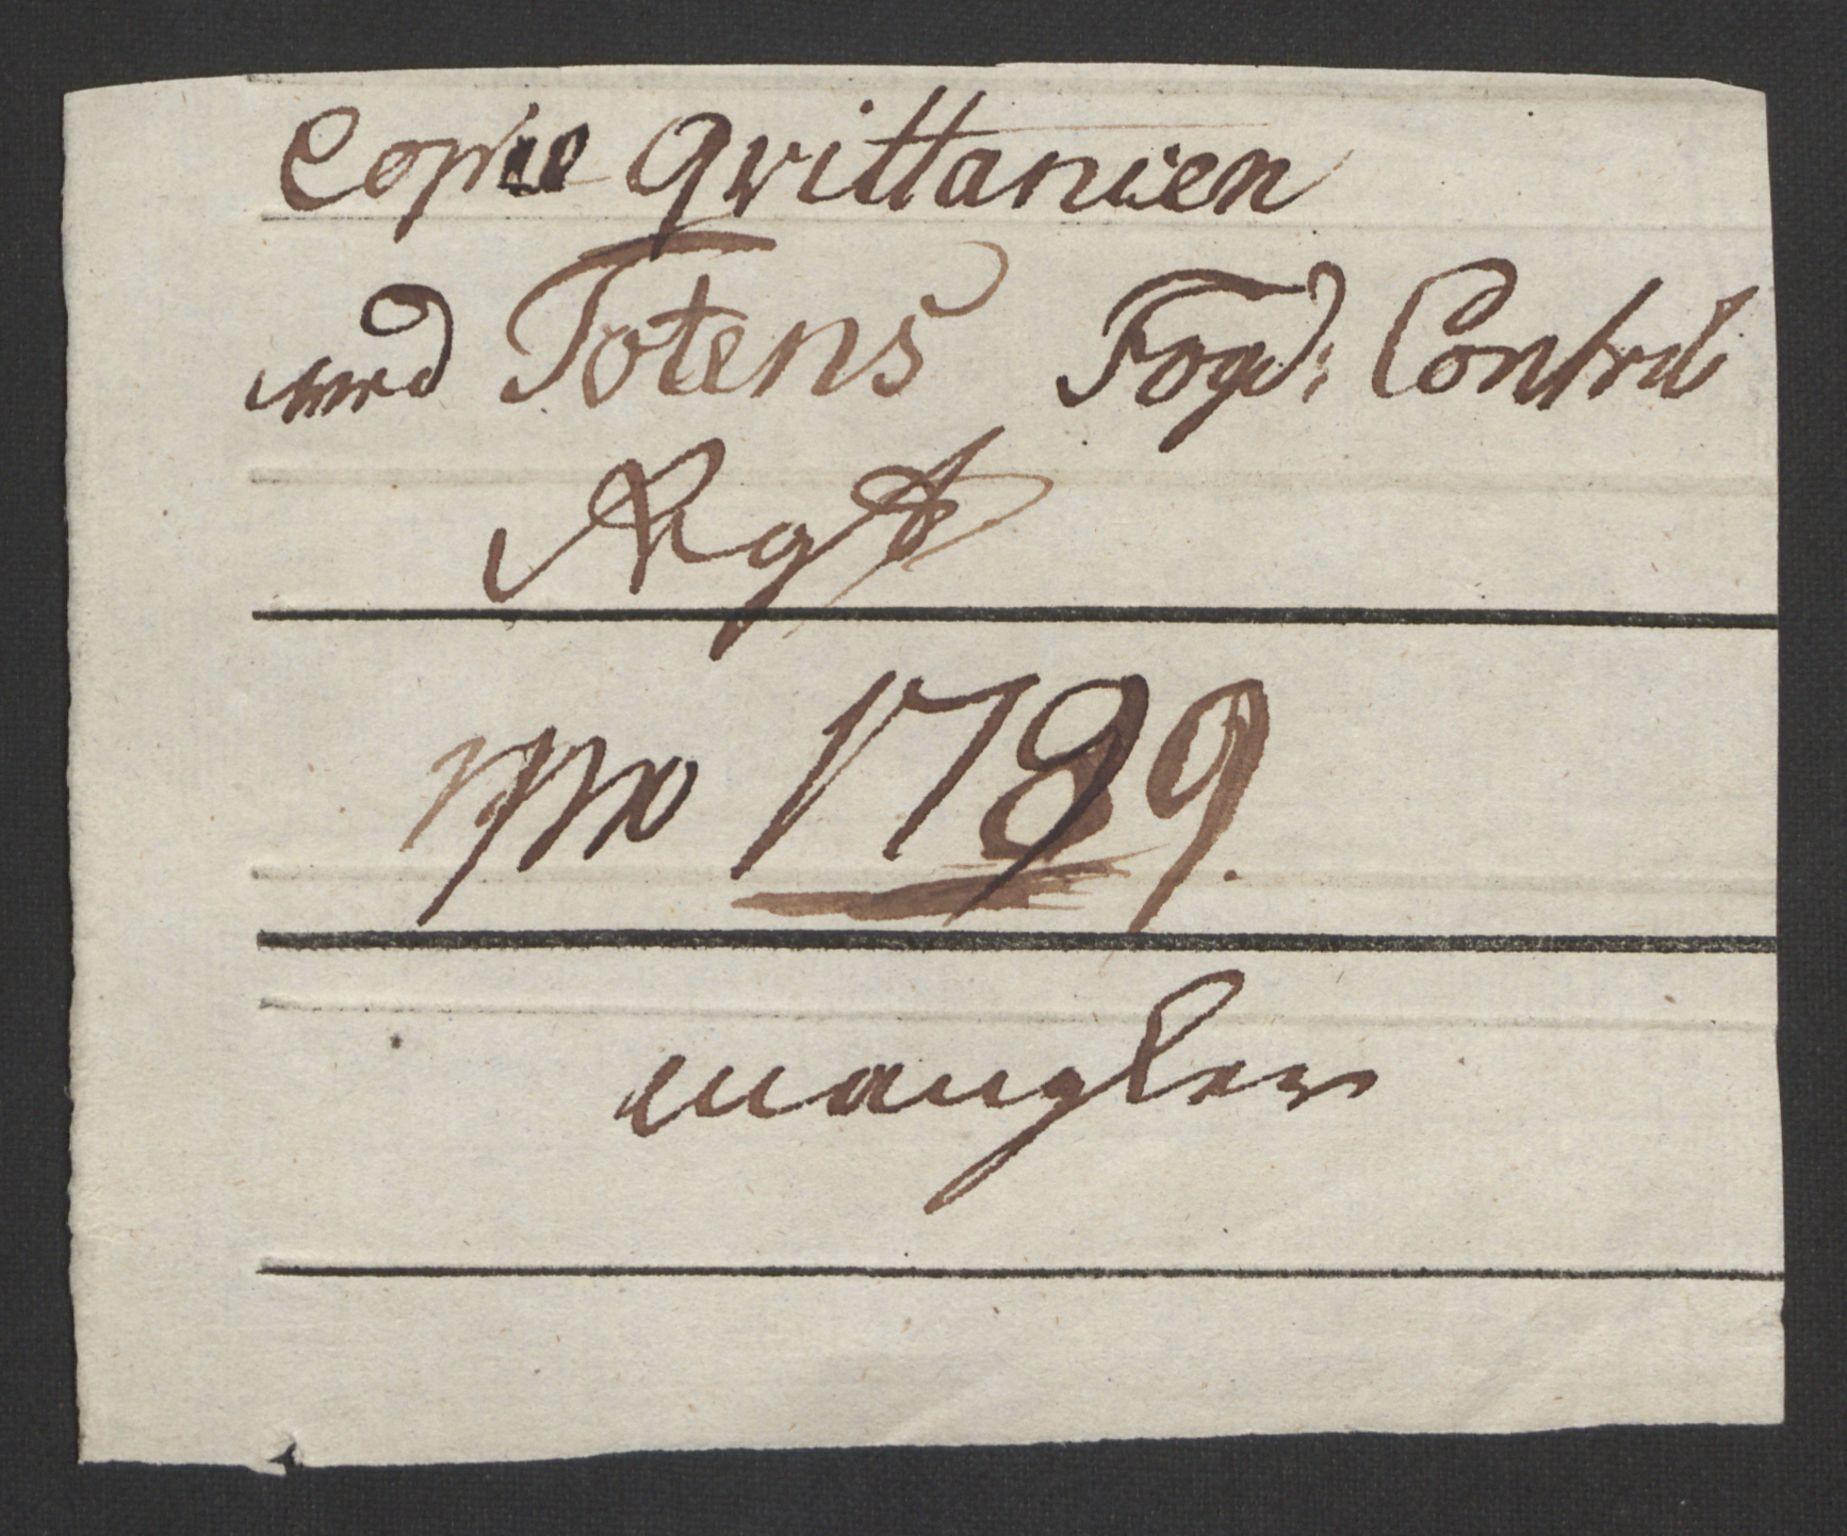 Copie Qvittancen
med Totens Fogd: Contrib
Rgsk
pro 1789.
mangler